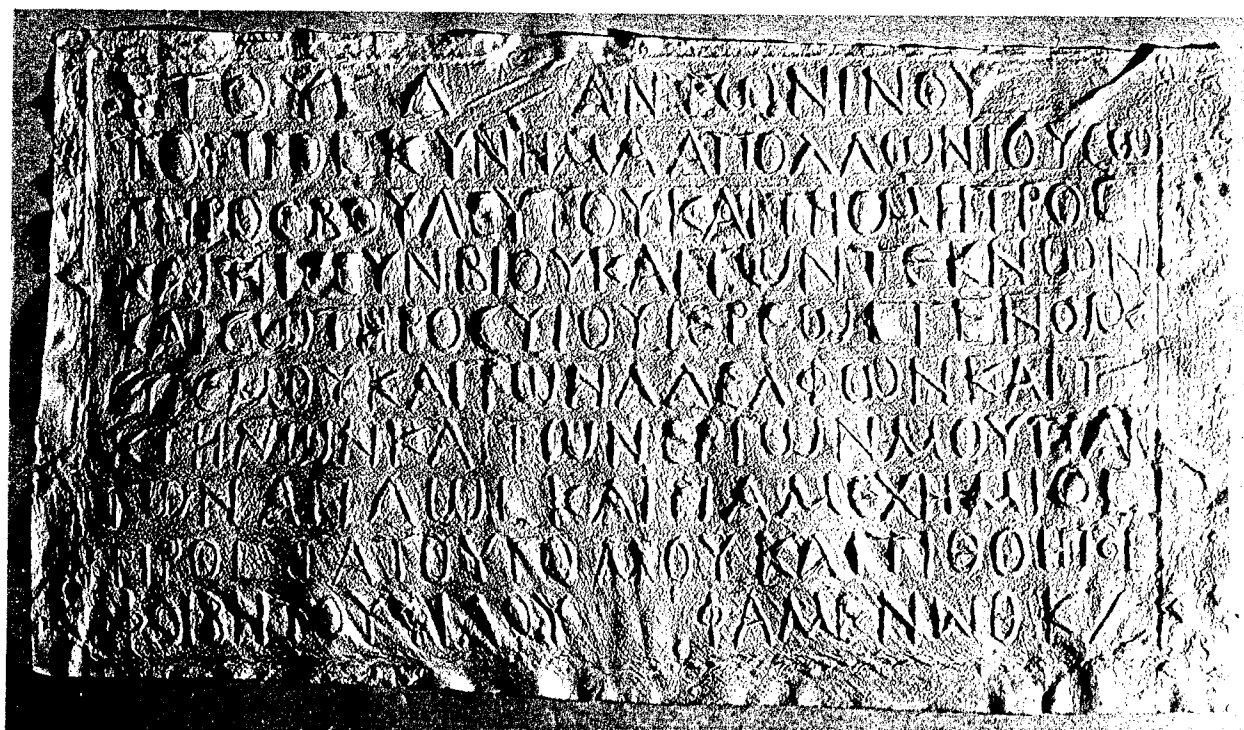 ΕΤΟΥϹ Δ ΑΝΤΩΝΙΝΟΥ
ΤΟ ΠΡΟϹΚΥΝΗΜΑ ΑΠΟΛΛΩΝΙΟΥ ϹΩ
ΤΗΡΟϹ ΒΟΥΛΕΥΤΟΥ ΚΑΙ ΤΗϹ ΜΗΤΡΟϹ
ΚΑΙ ΤΗϹ ϹΥΝΒΙΟΥ ΚΑΙ ΤΩΝ ΤΕΚΝΩΝ
ΚΑΙ ϹΩΤΗΡΟϹ ΥΙΟΥ ΙΕΡΕΩϹ ΓΕΝΟΜ
ΜΟΥ ΚΑΙ ΤΩΝ ΑΔΕΛΦΩΝ ΚΑΙ Τ
ΚΤΗΝΩΝ ΚΑΙ ΤΩΝ ΕΡΓΩΝ ΜΟΥ ΠΑ
ΝΤΩΝ ΑΠΛΩϹ ΚΑΙ ΠΑΜΕΧΗΜΙΟϹ
ΠΡΟϹΤΑΤΟΥ ΝΟΜΟΥ ΚΑΙ
ΦΑΜΕΝΩΘ Κ